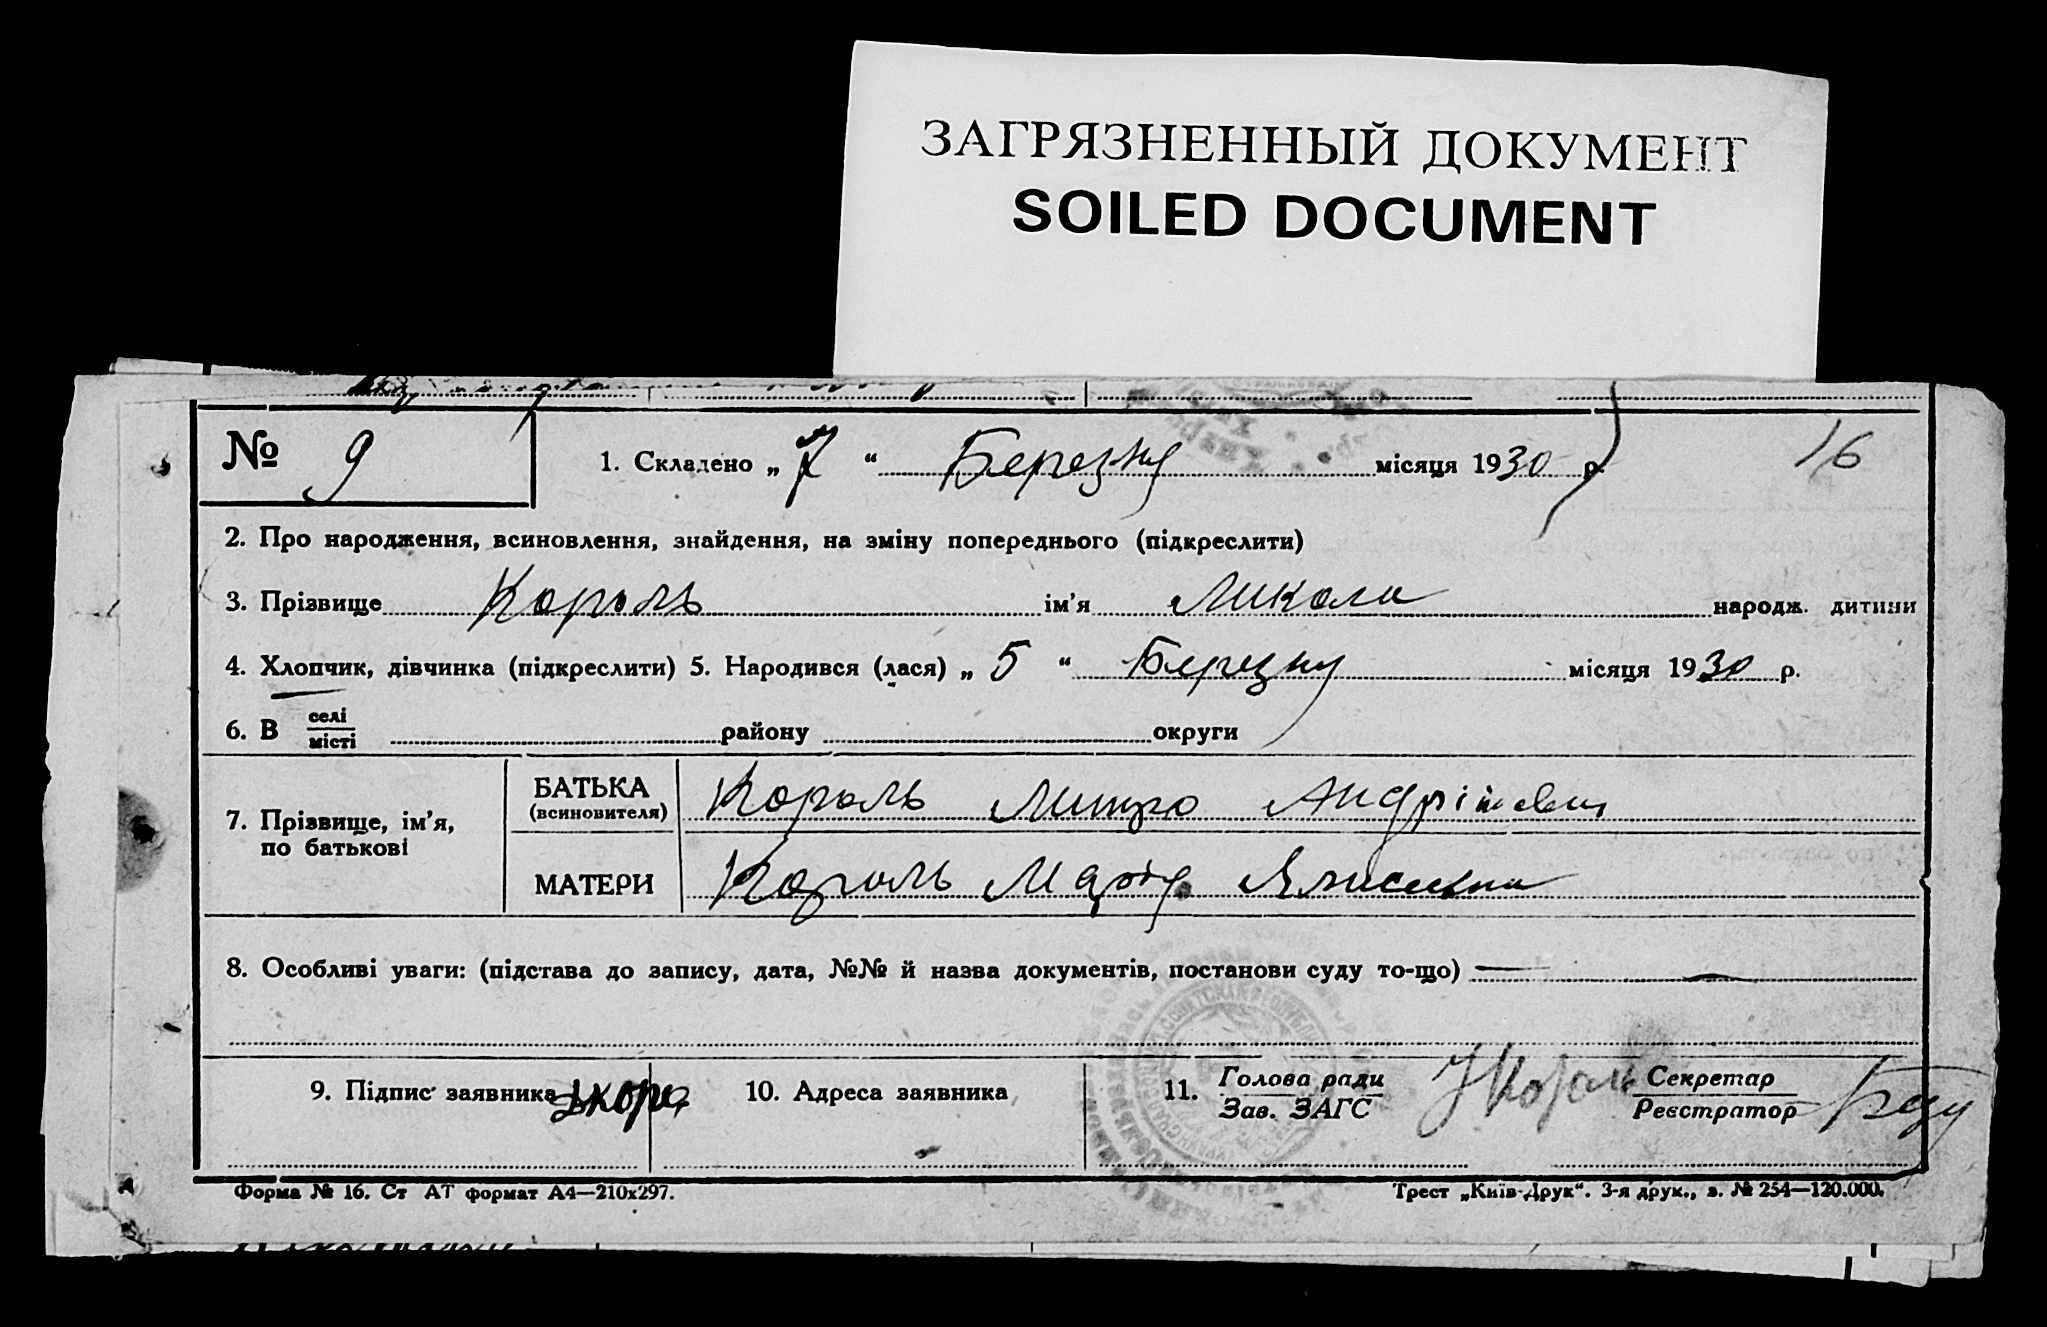 ЗАГРЯЗНЕННЫЙ ДОКУМЕНТ
SOILED DOCUMENT
№ 9
1. Складено „ 7 “ Березня місяця 1930 р.
16
2. Про народження, всиновлення, знайдення, на зміну попереднього (підкреслити)
3. Прізвище Король ім'я Микола народж. дитини
4. Хлопчик, дівчинка (підкреслити) 5. Народився (лася) „ 5 “ Березня місяця 1930 р.
6. В селі місті району округи
7. Прізвище, ім'я, по батькові
БАТЬКА (всиновителя) Король Митро Андрійович
МАТЕРИ Король Марія
8. Особливі уваги: (підстава до запису, дата, №№ й назва документів, постанови суду то-що)
9. Підпис заявника
10. Адреса заявника
11. Голова ради Зав. ЗАГС
Секретар Реєстратор
Форма № 16. Ст АТ формат А4—210х297.
Трест „Київ-Друк“. 3-я друк., з. № 254—120.000.